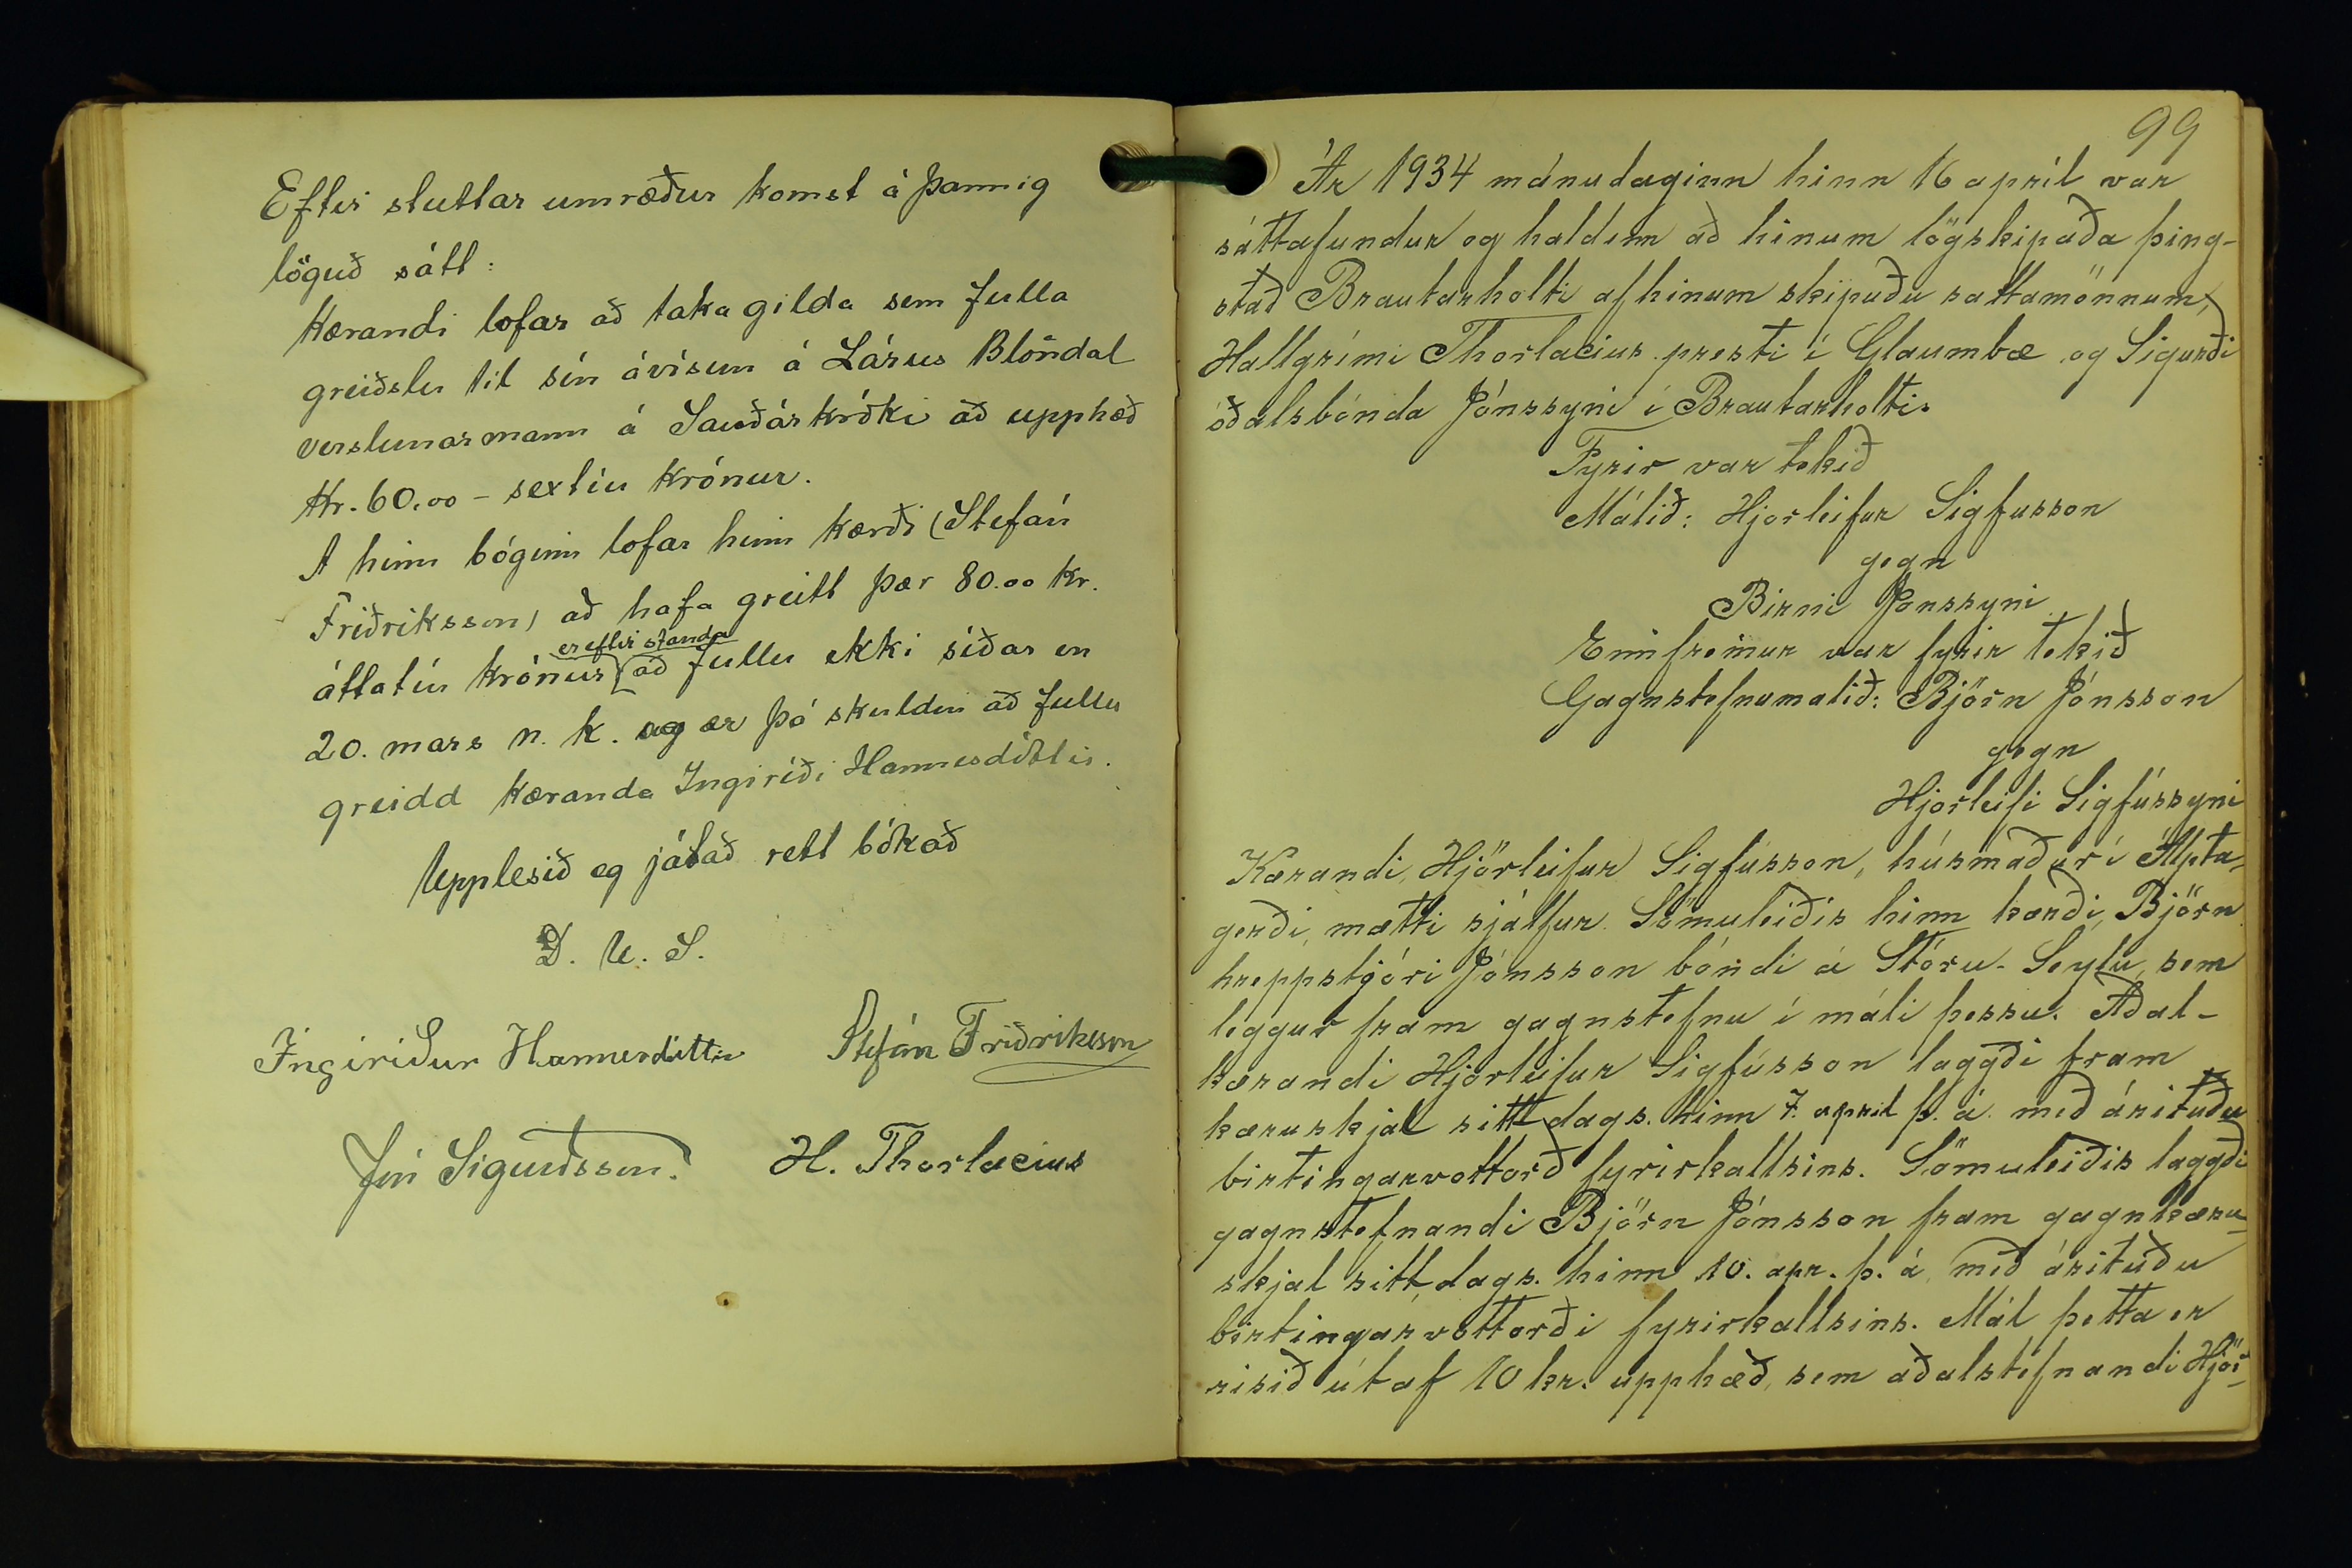 Eftir stuttar umræður komst á þannig
löguð sátt:
Kærandi lofar að taka gilda sem fulla
greiðslu til sín ávísun á Lárus Blöndal
verslunarmann á Sauðárkróki að upphæð
Kr. 60.00 - sextíu krónur.
Á hinn bóginn lofar hinn kærði (Stefán
Friðriksson) að hafa greitt þær 80.00 Kr.
er eftir standa
áttatíu krónur að fullu ekki síðar en
20. mars n. k. og er þá skuldin að fullu
greidd kæranda Ingiríði Hannesdóttir.
Upplesið og játað rett bókað
D. U. S.
Ingiríður Hannesdóttir Stefán Friðriksson
Jón Sigurðsson. H. Thorlacius
99
Ár 1934 mánudaginn hinn 16 apríl var
sáttafundur og haldinn að hinum lögskipaða þing-
stað Brautarholti af hinum skipuðu sattamönnum,
Hallgrími Thorlacius presti í Glaumbæ og Sigurði
óðalsbónda Jónssyni í Brautarholti.
Fyrir var tekið
Málið: Hjorleifur Sigfusson
gegn
Birni Jónssyni
Ennfremur var fyrir tekið
Gagnstefnumalið: Björn Jónsson
gegn
Hjorleifi Sigfússyni
Kærandi, Hjörleifur Sigfússon, húsmaður í Álpta-
gerði, mætti sjálfur. Sömuleiðis hinn kærði, Björn
hreppstjóri Jónsson bóndi á Stóru-Seylu, sem
leggur fram gagnstefnu í máli þessu. Aðal-
kærandi Hjorleifur Sigfússon laggði fram
kæruskjal sitt dags. hinn 7. apríl þ. á. með árituðu
birtingarvottorð fyrirkallsins. Sömuleiðis laggði
gagnstefnandi Björn Jónsson fram gagnkæru-
skjal sitt, dags. hinn 10. apr. þ. á. með árituðu
birtingarvottorði fyrirkallsins. Mál þetta er
risið út af 10 kr. upphæð, sem aðalstefnandi Hjör-